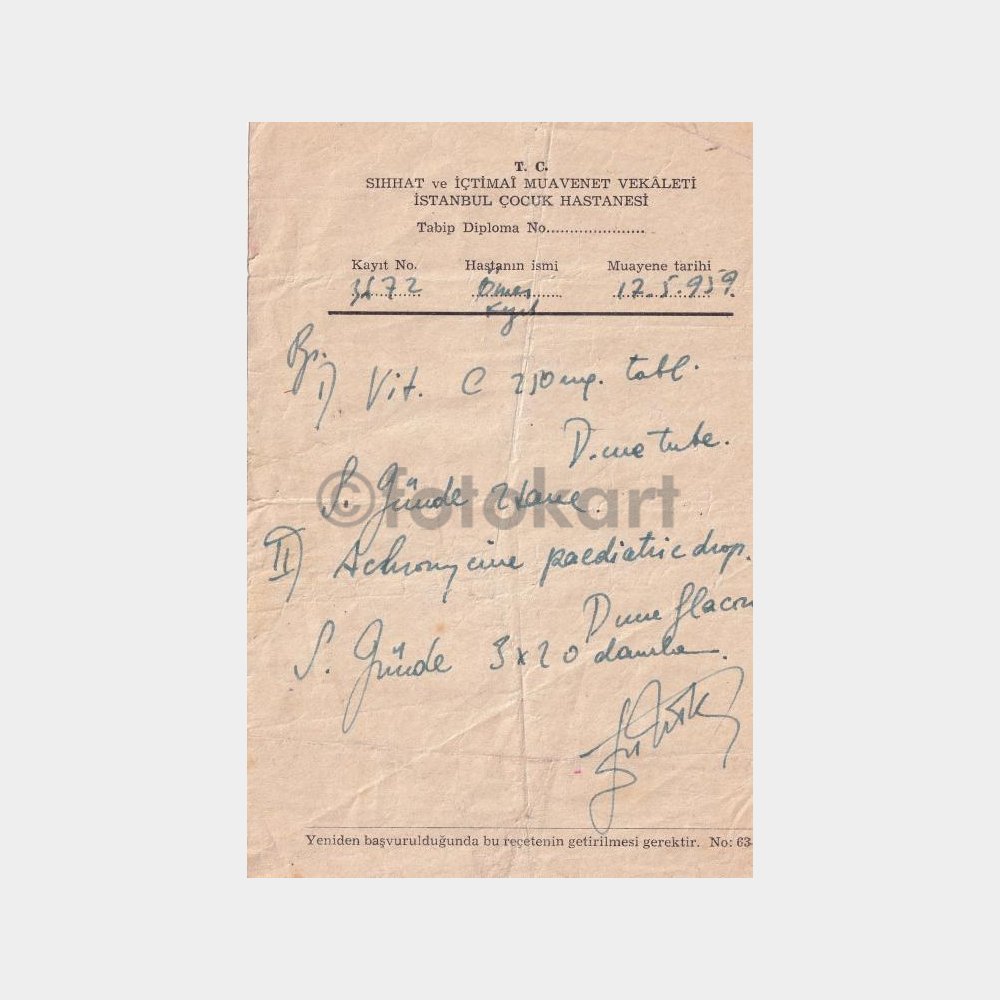 T. C.
SIHHAT ve İÇTİMAÎ MUAVENET VEKÂLETİ
İSTANBUL ÇOCUK HASTANESİ
Tabip Diploma No.....................
Kayıt No. Hastanın ismi Muayene tarihi
Ömer 12.5.959.
Rp.
I) Vit. C 250 mg. tabl.
D. une tube.
S. Günde 2 tane.
©fotokart
II) Achromycine paediatric drop.
D une flacon
S. Günde 3x20 damla.
Yeniden başvurulduğunda bu reçetenin getirilmesi gerektir. No: 63